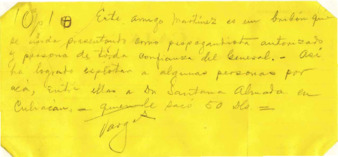 Ojo! Este amigo Martínez es un bribón que
se anda presentando como propagandista autorizado
y persona de toda confianza del General. - Así
ha logrado explotar a algunas personas por
acá, Entre ellas a Dn Santana Almada en
Culiacán, - quien le sacó 50 Dls =
Vargas